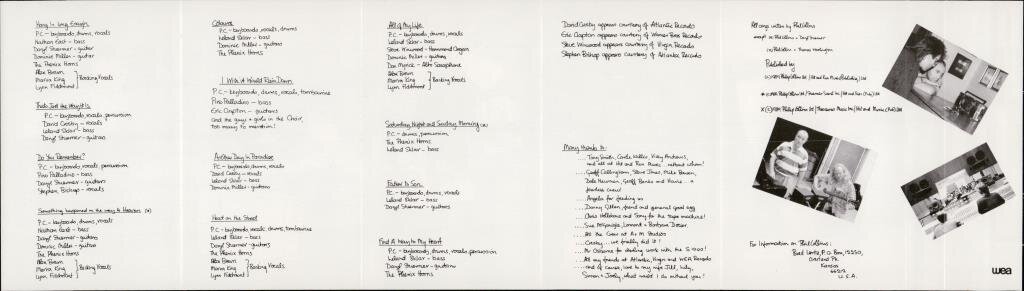 Hang In Long Enough
P.C - keyboards, drums, vocals
Nathan East - bass
Daryl Stuermer - guitar
Dominic Miller - guitar
The Phenix Horns
Alex Brown
Marva King
Lynn Fiddmont
Backing Vocals
That's Just the Way It Is
P.C - keyboards, vocals, percussion
David Crosby - vocals
Leland Sklar - bass
Daryl Stuermer - guitars
Do You Remember?
P.C - keyboards, vocals, percussion
Pino Palladino - bass
Daryl Stuermer - guitars
Stephen Bishop - vocals
Something happened on the way to Heaven (*)
P.C - keyboards, drums, vocals
Nathan East - bass
Daryl Stuermer - guitars
Dominic Miller - guitars
The Phenix Horns
Alex Brown
Marva King
Lynn Fiddmont
Backing Vocals
Colours
P.C - keyboards, vocals, drums
Leland Sklar - bass
Dominic Miller - guitars
The Phenix Horns
I Wish It Would Rain Down
P.C - keyboards, drums, vocals, tambourine
Pino Palladino - bass
Eric Clapton - guitars
and the guys + girls in the Choir,
too many to mention!
Another Day In Paradise
P.C - keyboards, drums, vocals
David Crosby - vocals
Leland Sklar - bass
Dominic Miller - guitars
Heat on the Street
P.C - keyboards, drums, vocals, tambourine
Leland Sklar - bass
Daryl Stuermer - guitars
The Phenix Horns
Alex Brown
Marva King
Lynn Fiddmont
Backing Vocals
All of My Life
P.C - keyboards, drums, vocals
Leland Sklar - bass
Steve Winwood - Hammond Organ
Dominic Miller - guitars
Don Myrick - Alto Saxophone
Alex Brown
Marva King
Lynn Fiddmont
Backing Vocals
Saturday Night and Sunday Morning
P.C - drums, percussion
The Phenix Horns
Leland Sklar - bass
Father to Son
P.C - keyboards, drums, vocals
Leland Sklar - bass
Daryl Stuermer - guitars
Find A Way to My Heart
P.C - keyboards, drums, vocals, percussion
Leland Sklar - bass
Daryl Stuermer - guitars
The Phenix Horns
David Crosby appears courtesy of Atlantic Records
Eric Clapton appears courtesy of Warner Bros Records
Steve Winwood appears courtesy of Virgin Records
Stephen Bishop appears courtesy of Atlantic Records
Many thanks to:
....Tony Smith, Carole Willis, Vicky Andrews,
and all at Hit and Run Music
....Geoff Callingham, Steve Jones, Mike Bowen,
Dale Newman, Geoff Banks and
fearless crew!
....Angela for feeding us
....Danny Gillen, friend and general good egg
....Chris Hollebone and Sony for the tape machine!
....Sue
....All the Crew at A+M Studios
....Crosby - we finally did it!
....Mr Osborne for
....All my friends at Atlantic, Virgin and WEA Records
....and of course, love to my wife Jill, Lily,
Simon + Joely, what would I do without you!
All songs written by Phil Collins
except (*) Phil Collins + Daryl Stuermer
Phil Collins + Thomas Washington
Published by
(c) 1989 Philip Collins Ltd / Hit and Run Music (Publishing) Ltd
For Information on Phil Collins:
Brad Lentz, P.O. Box 12250,
Overland Pk.
Kansas
66212
U.S.A.
wea